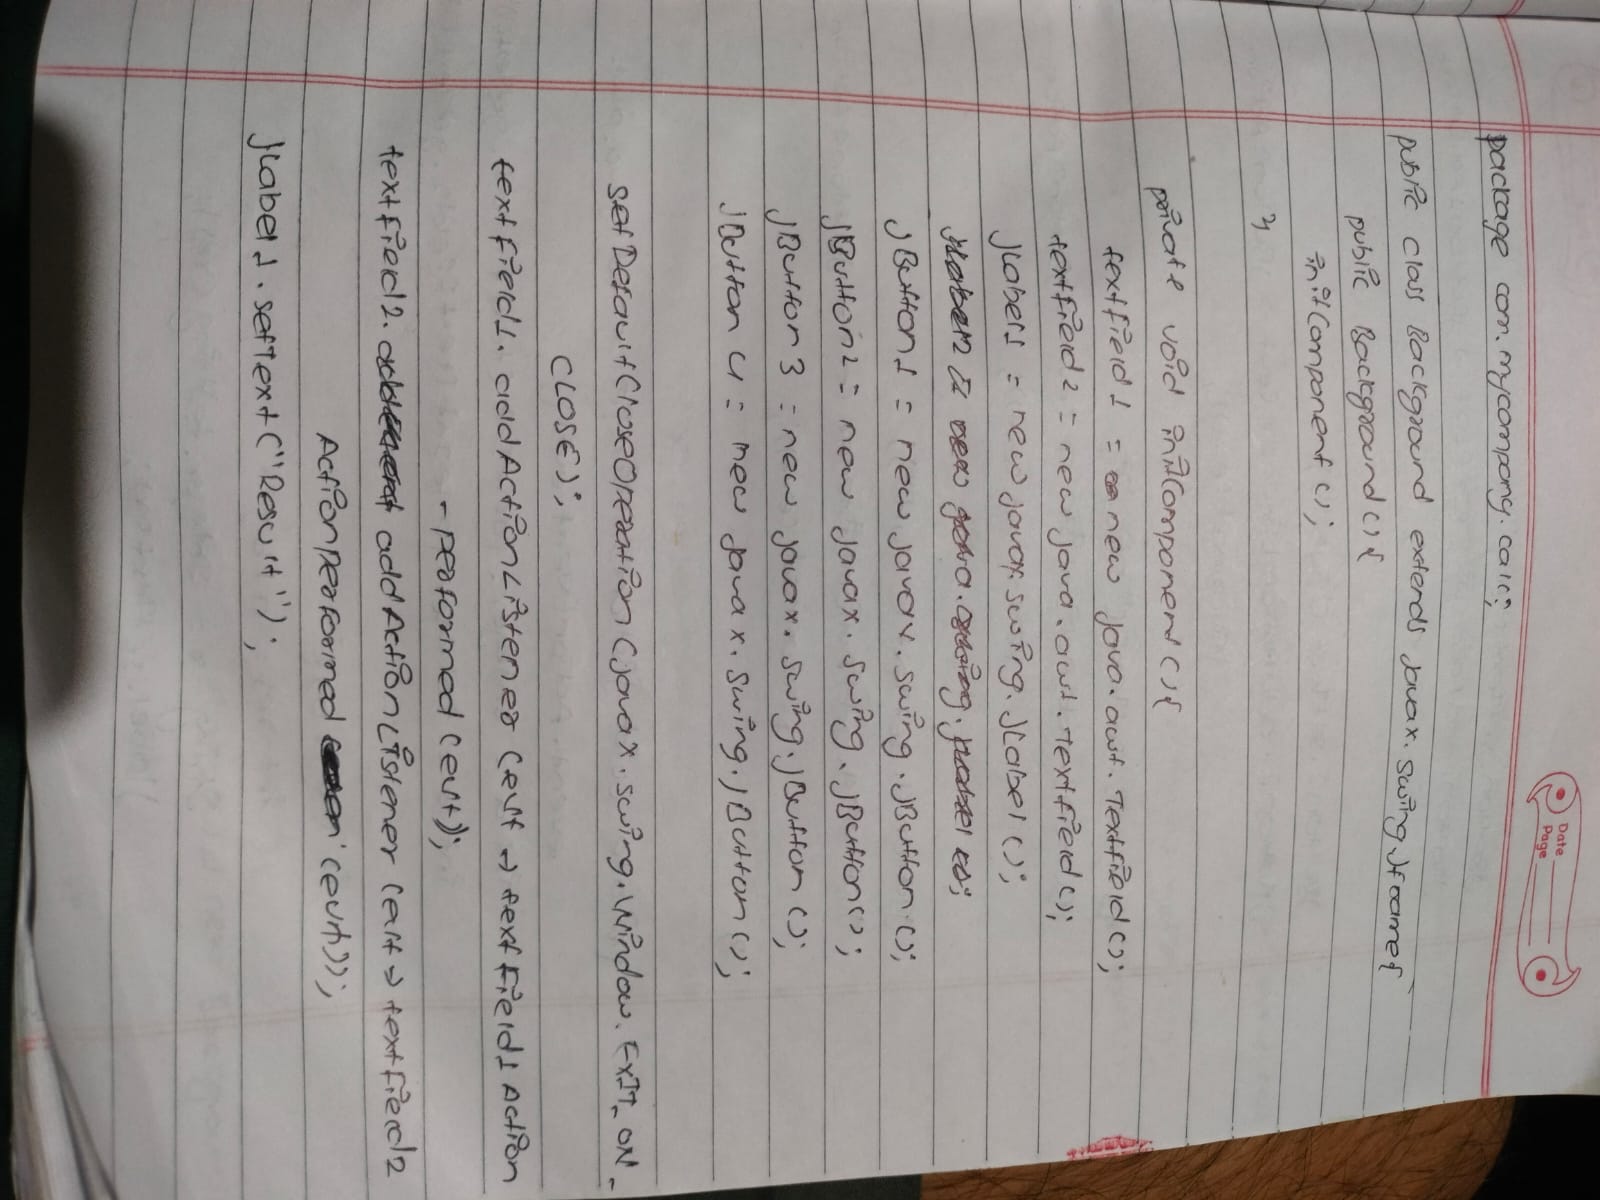 Date
Page
package com.mycompany.calc;
public class Background extends javax.swing.Jframe{
public Background(){
initComponent();
}
private void initComponend(){
textfield1 = new java.awt.Textfield();
textfield2 = new java.awt.textfield();
jlabel1 = new javax.swing.jLabel();
jButton1 = new javax.swing.jButton();
jButton2 = new javax.swing.jButton();
jButton3 = new javax.swing.jButton();
jButton4 = new javax.swing.jButton();
setDefaultCloseOperation(javax.swing.Window.EXIT_ON_
CLOSE);
textfield1.addActionListener(evt -> textfield1Action
-performed(evt));
textfield2.addActionListener(evt -> textfield2
ActionPerformed(evt));
jLabel1.setText("Result");